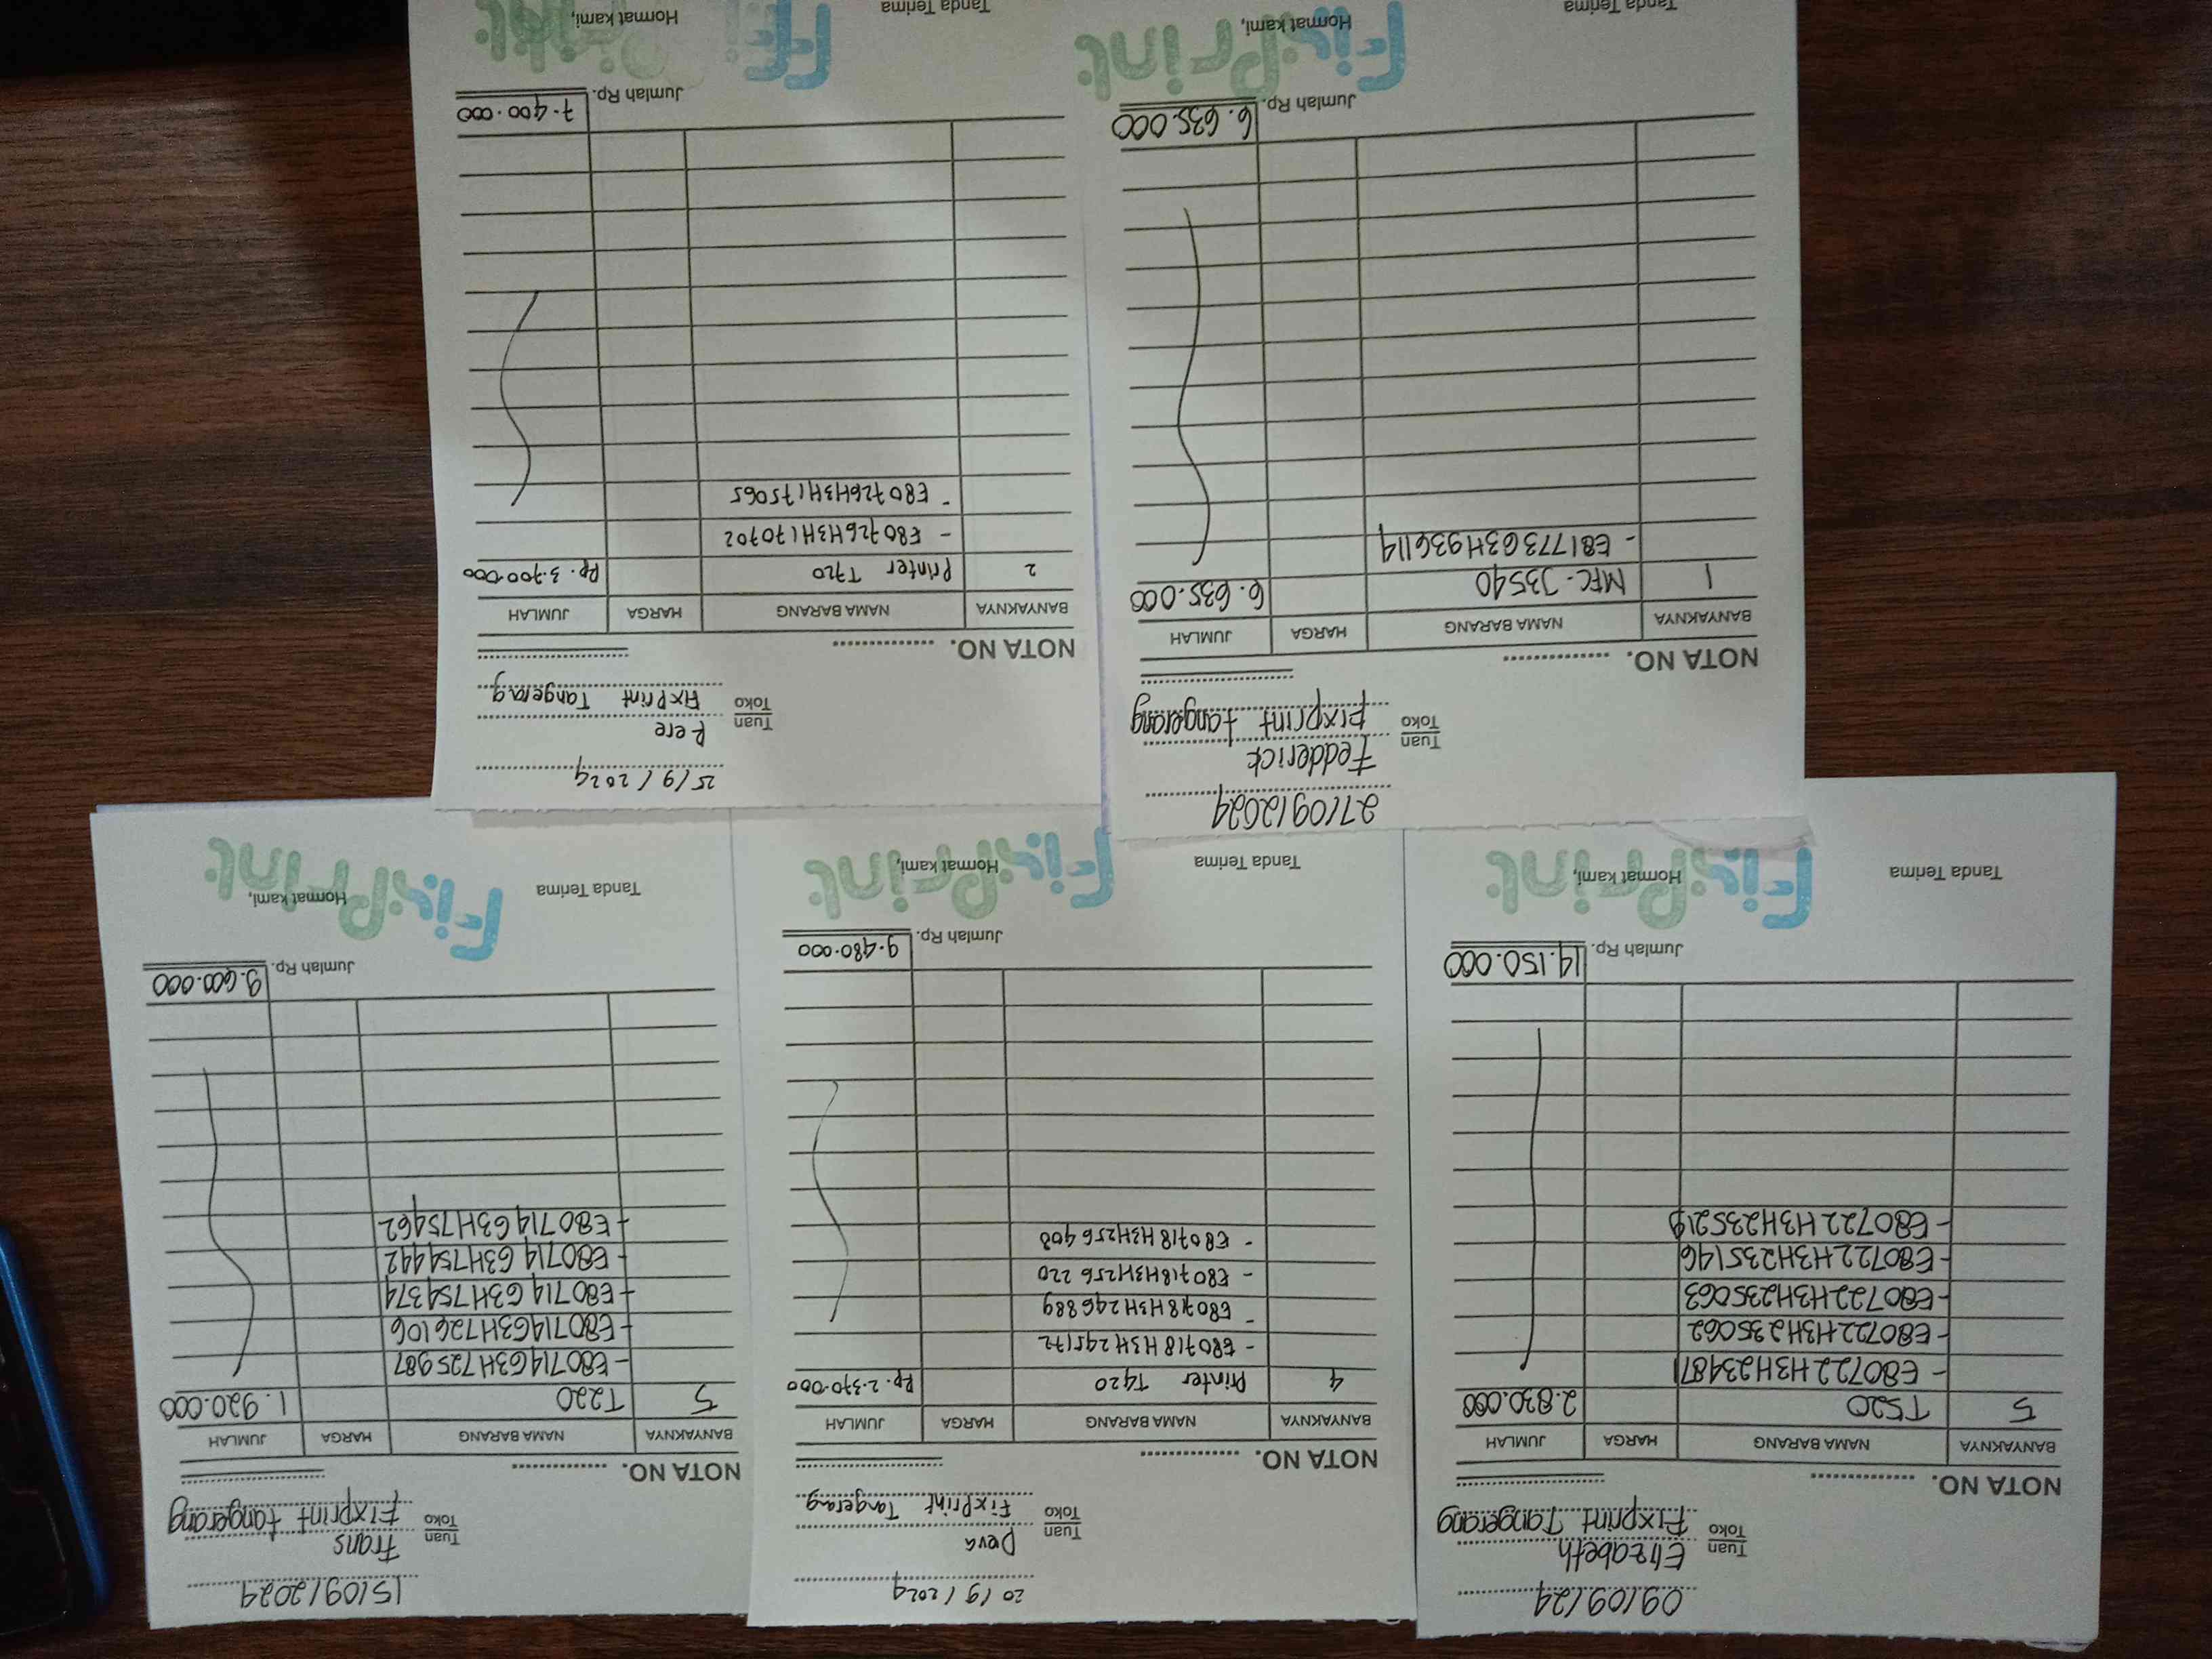 09/09/24
Tuan
Toko
Elizabeth
Fixprint Tangerang
NOTA NO.
BANYAKNYA NAMA BARANG HARGA JUMLAH
5 T520 2.830.000
- E80722H3H234871
- E80722H3H235062
- E80722H3H235063
- E80722H3H235146
- E80722H3H235219
Jumlah Rp. 14.150.000
Tanda Terima Hormat kami,
FixPrint
20/9/2024
Tuan
Toko
Deva
FixPrint Tangerang
NOTA NO.
BANYAKNYA NAMA BARANG HARGA JUMLAH
4 Printer T420 Rp. 2.370.000
- E80718H3H245172
- E80718H3H246889
- E80718H3H256220
- E80718H3H256408
Jumlah Rp. 9.480.000
Tanda Terima Hormat kami,
FixPrint
15/09/2024
Tuan
Toko
Frans
Fixprint tangerang
NOTA NO.
BANYAKNYA NAMA BARANG HARGA JUMLAH
5 T220 1.920.000
- E80714G3H725987
- E80714G3H726106
- E80714G3H754374
- E80714G3H754442
- E80714G3H75462
Jumlah Rp. 9.600.000
Tanda Terima Hormat kami,
FixPrint
27/09/2024
Tuan
Toko
Fedderick
Fixprint tangerang
NOTA NO.
BANYAKNYA NAMA BARANG HARGA JUMLAH
1 MFC-J3540 6.635.000
- E81773G3H936114
Jumlah Rp. 6.635.000
Tanda Terima Hormat kami,
FixPrint
25/9/2024
Tuan
Toko
Rere
FixPrint Tangerang
NOTA NO.
BANYAKNYA NAMA BARANG HARGA JUMLAH
2 Printer T720 Rp. 3.700.000
- E80726H3H170702
- E80726H3H175065
Jumlah Rp. 7.400.000
Tanda Terima Hormat kami,